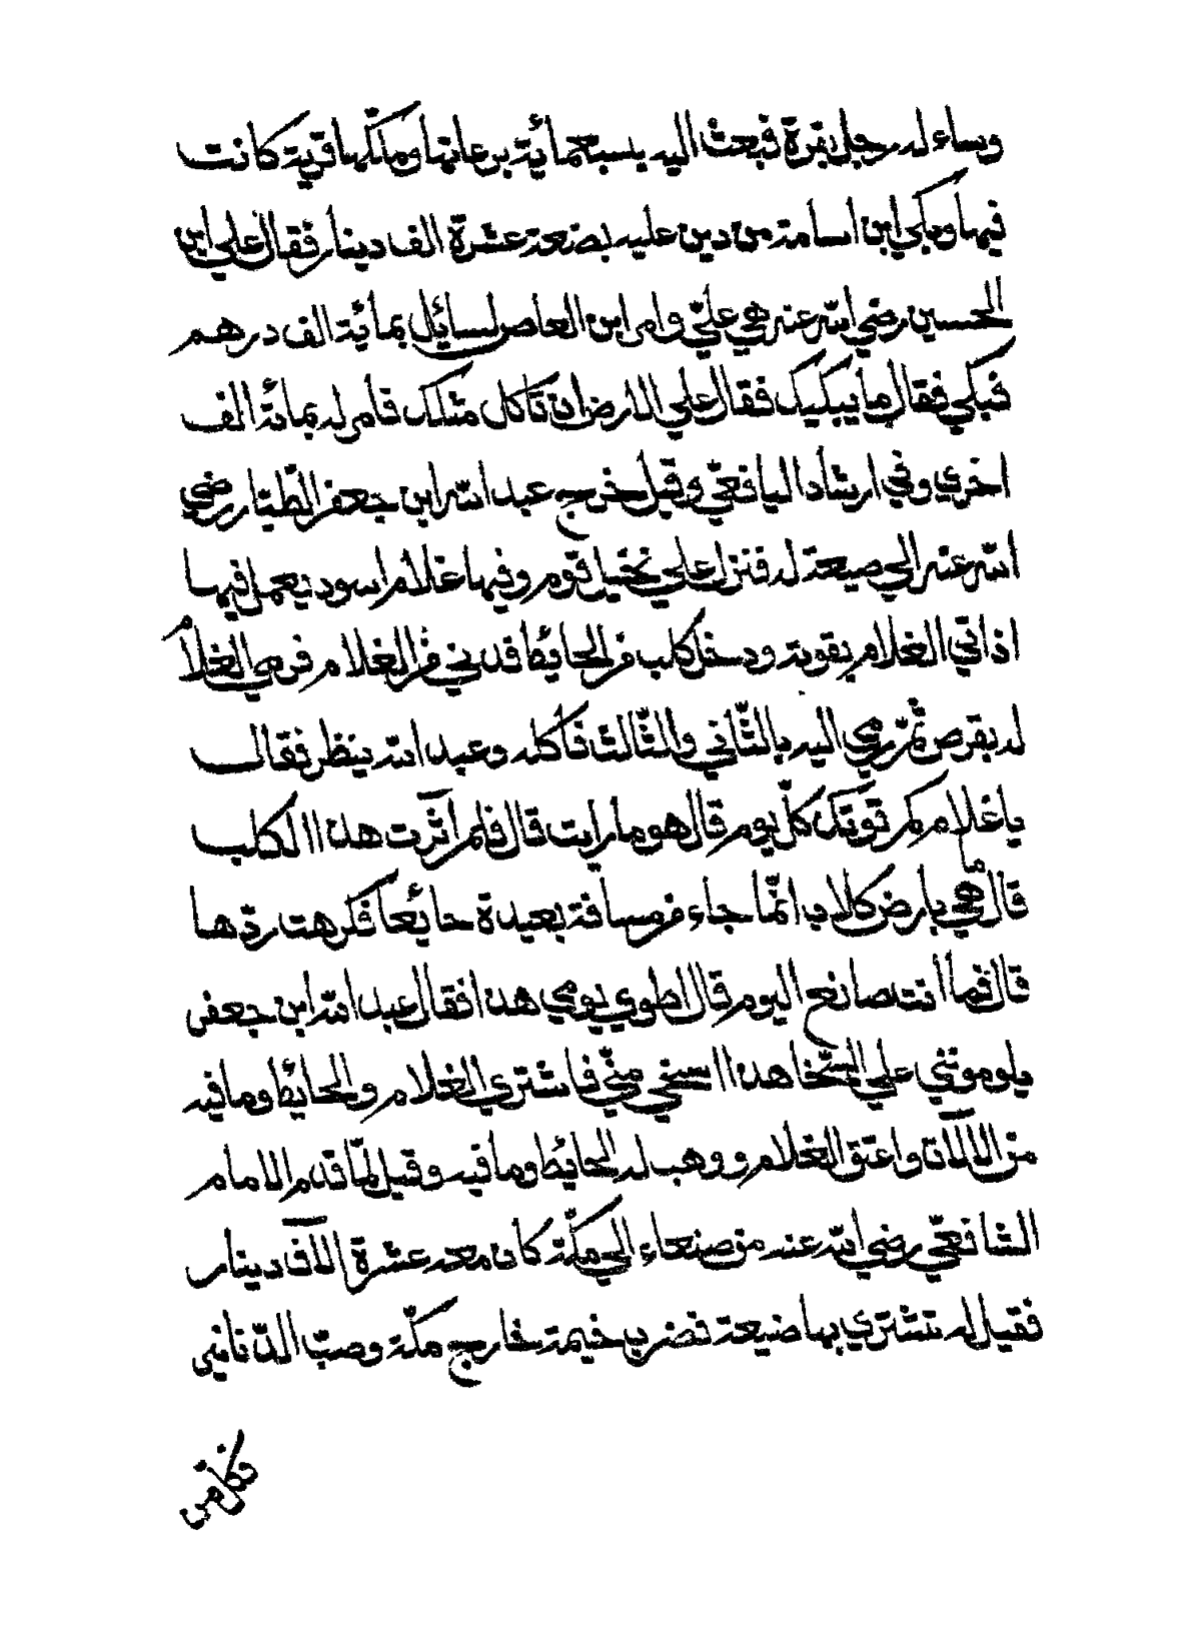 وساءله رجل بقرة فبعث اليه بسبعمائية برعاتها وملكها قرية كانت
فيها وبكي ابن اسامة من دين عليه بضعة عشرة الف دينار فقال علي ابن
الحسين رضي الله عنه هي عليّ وامر ابن العاص لسائل بمائة الف درهم
فبكي فقال ما يبكيك فقال علي الارض ان تاكل مثلك فامر له بمائة الف
اخري وفي ارشاد اليافعيّ وقيل خرج عبد الله ابن جعفر الطّيار رضي
الله عنه الي ضيعة له فنزل علي نخيل قوم وفيها غلام اسود يعمل فيها
اذ اتي الغلام بقوته ودخل كلب من الحائط فدني من الغلام فرمي الغلام
له بقرص ثمّ رمي اليه بالثّاني والثّالث فأكله وعبد الله ينظر فقال
يا غلام كم قوتك كلّ يوم قال هو ما رايت قال فلم آثرت هذا الكلب
قال ما هي بأرض كلاب انّما جاء من مسافة بعيدة جائعا فكرهت ردّها
قال فما أنت صانع اليوم قال اطوي يومي هذا فقال عبد الله ابن جعفر
يلومونني علي السّخا هذا اسخي منّي فاشتري الغلام والحائط وما فيه
من الالآت واعتق الغلام ووهب له الحائط وما فيه وقيل لمّا قدم الامام
الشافعيّ رضي الله عنه من صنعاء الي مكّة كان معه عشرة الآف دينار
فقيل له تشتري بها ضيعة فضرب خيمة خارج مكّة وصبّ الدّنانير
فكل من